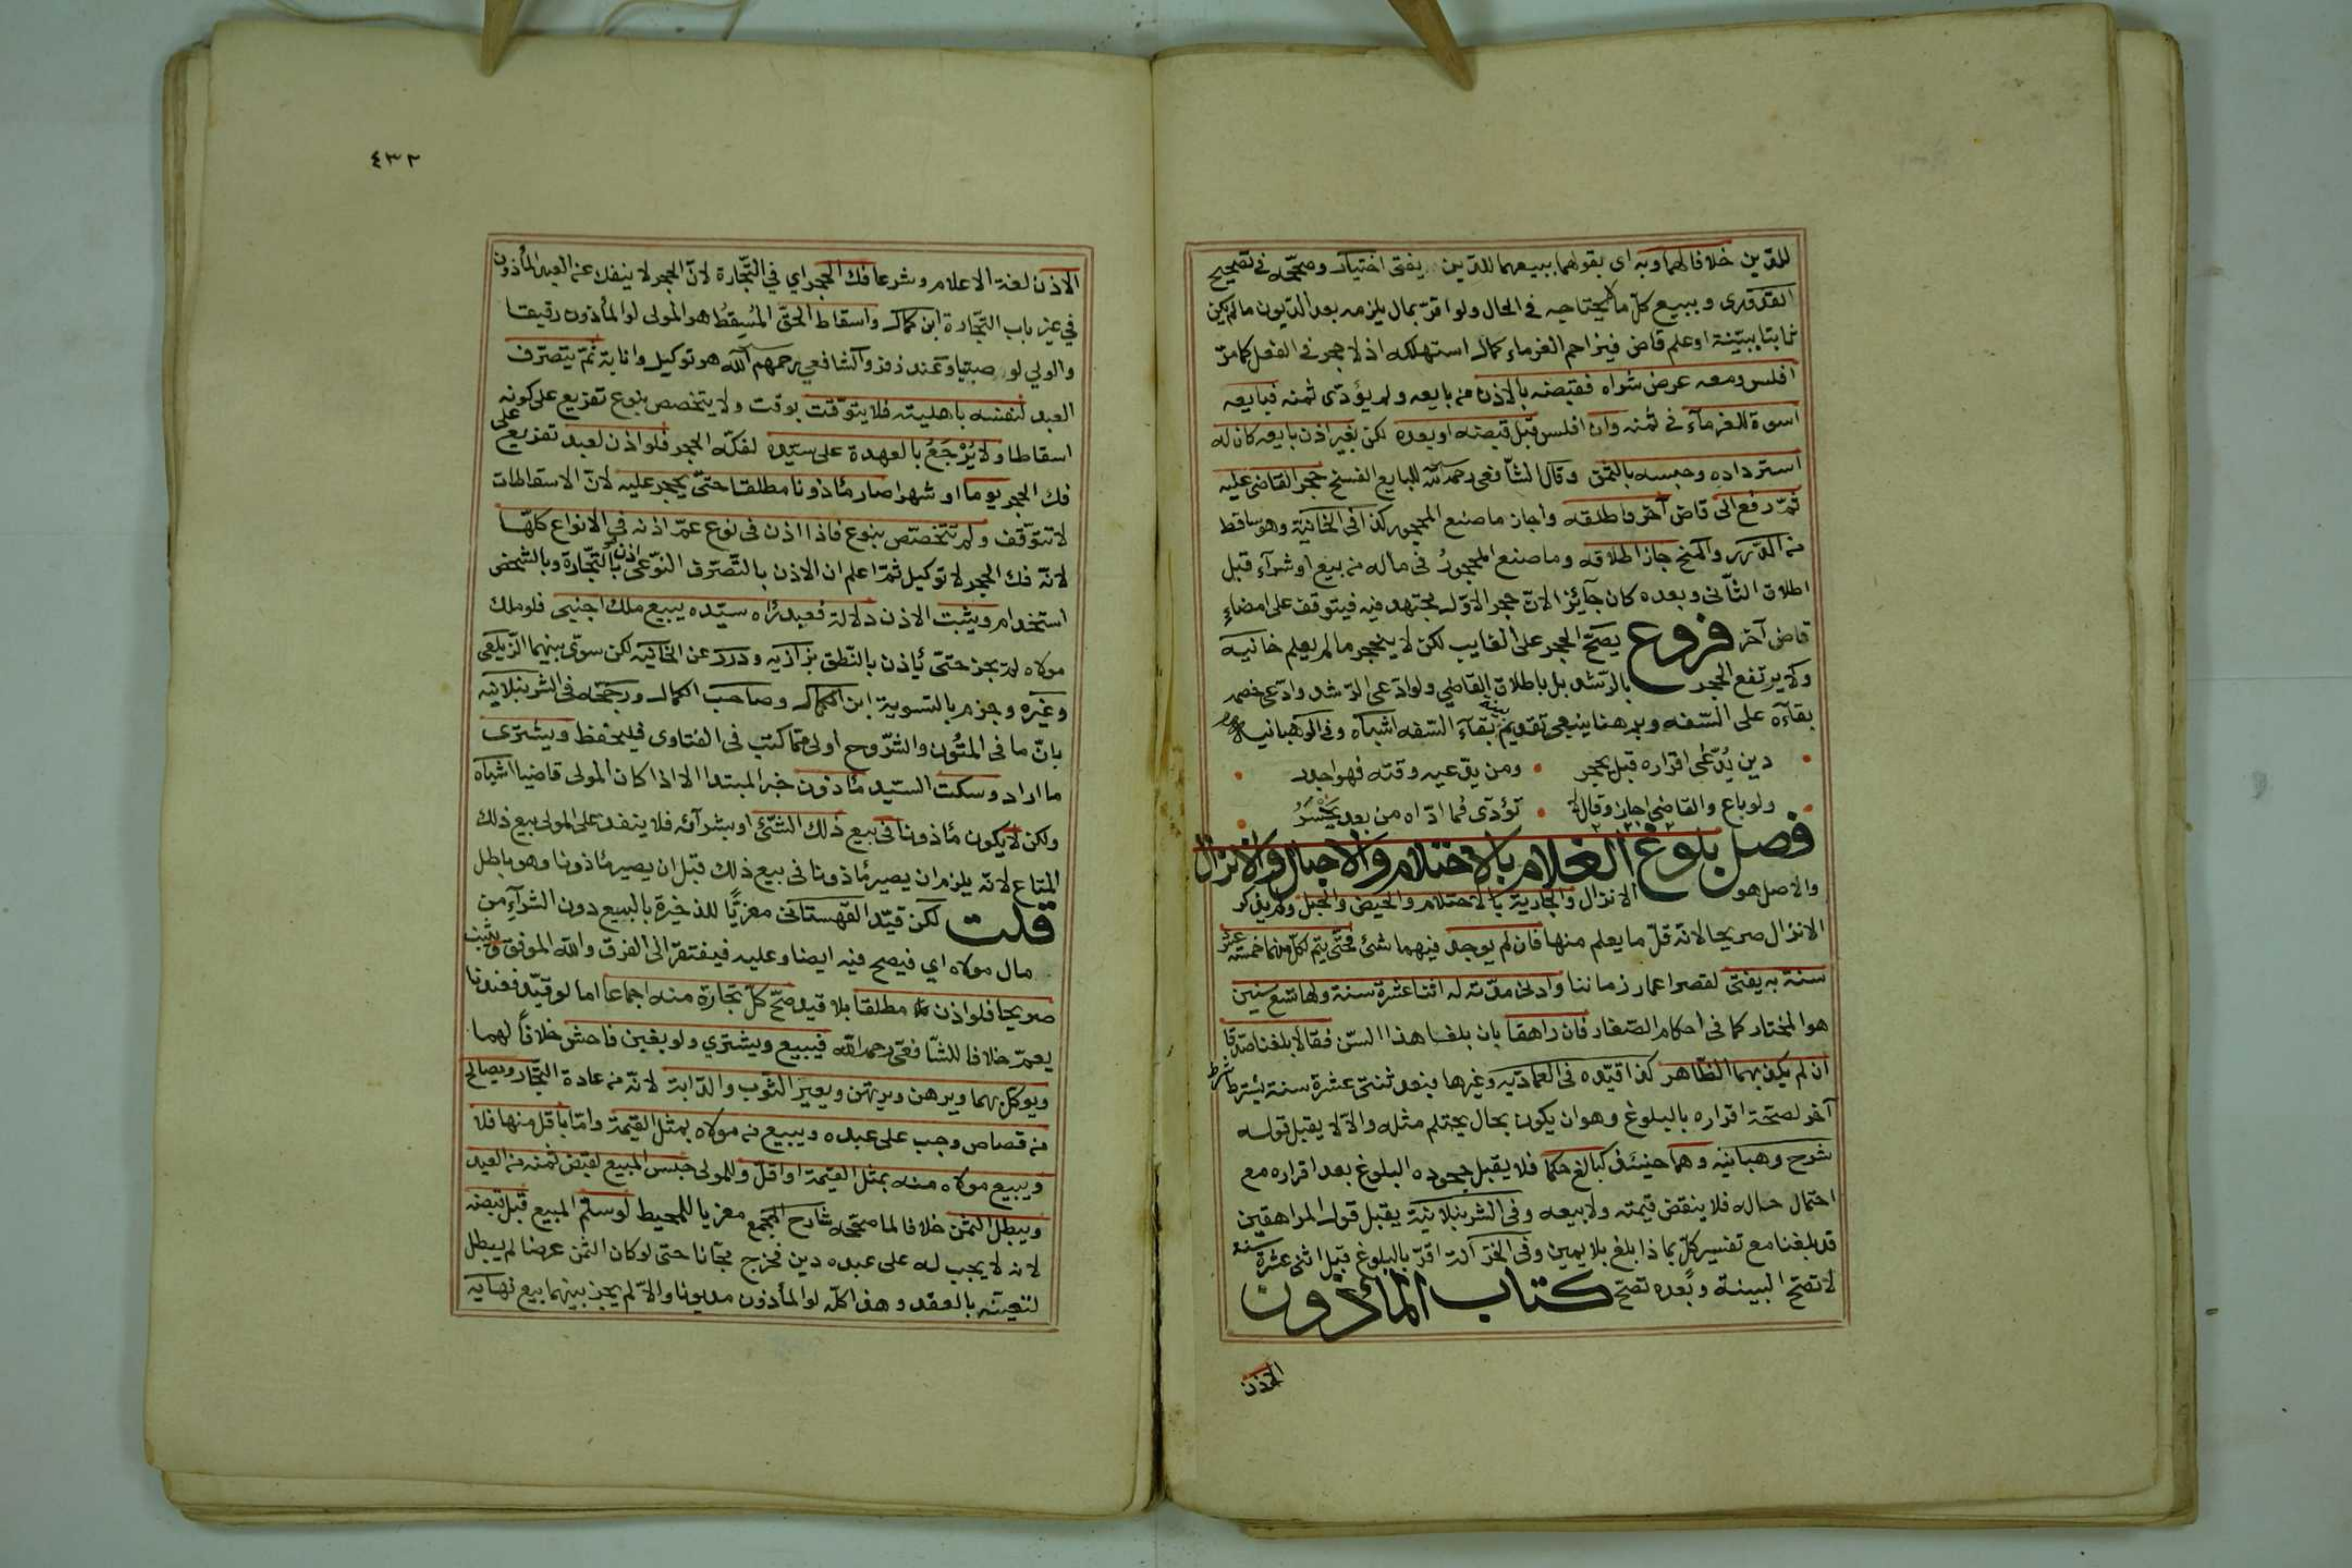 للدين خلافا لهما وبه اى بقولهما ببيعهما للدين يفتى اختيار وصححه فى تصحيح
القدورى ويبيع كلّ ما لا يحتاجه فى الحال ولو اقرّ بمال يلزمه بعد الديون ما لم يكن
ثابتا ببيّنة او علم قاض فيزاحم الغرماء كمال استهلكه اذ لا حجر فى الفعل كما مرّ
افلس ومعه عرض شراه فقبضه بالاذن من بايعه ولم يؤدّى ثمنه فبايعه
اسوة للغرمآء فى ثمنه وان افلس قبل قبضه او بعده لكن بغير اذن بايعه كان له
استرداده وحبسه بالثمن وقال الشافعى رحمه الله للبايع الفسخ حجر القاضى عليه
ثمّ رفع الى قاض آخر فاطلقه واجاز ما صنع المحجور كذا فى الخانية وهو ساقط
من الدرر والمنح جاز اطلاقه وما صنع المحجورُ فى ماله من بيع او شرآء قبل
اطلاق الثّانى وبعده كان جآئزا لانّ حجر الاوّل مجتهد فيه فيتوقف على امضاءِ
قاض آخر فروع يصحّ الحجر على الغايب لكن لا ينحجر ما لم يعلم خانيه
ولا يرتفع الحجر بالرّشد بل باطلاق القاضي ولو ادّعى الرّشد وادّعى خصمه
بقآءه على السّفه وبرهنا ينبغى تقديم بينة بقآء السّفه اشباه وفى الوهبانيه
دين يُدّعى اقراره قبل يحجر ومن يدّعيه وقته فهو اجدر
ولو باع والقاضى اجاز وقال لا تؤدّى فما ادّاه من بعد يخسَرُ
فصل بلوغ الغلام بالاحتلام والاحبال والانزال
والاصل هو الانزال والجارية بالاحتلام والحيض والحبل ولم يذكر
الانزال صريحا لانّه قلّ ما يعلم منها فان لم يوجد فيهما شئ فحتّى يتم لكلّ منهما خمسة عشر
سنة به يفتى لقصر اعمار زماننا وادنى مدّته له اثنا عشرة سنة ولها تسع سنين
هو المختار كما فى احكام الصّغار فان راهقا بان بلغا هذا السّن فقالا بلغنا صدّقا
ان لم يكذبهما الظّاهر كذا قيّده فى العمادّيه وغيرها فبعد ثنتى عشرة سنة يشترط شرط
آخر لصحّة اقراره بالبلوغ وهو ان يكون بحال يحتلم مثله والّا لا يقبل قوله
شرح وهبانيه وهما حينئذ كبالغ حكما فلا يقبل جحوده البلوغ بعد اقراره مع
احتمال حاله فلا ينقض قيمته ولا بيعه وفى الشرنبلانية يقبل قول المراهقين
قد بلغنا مع تفسير كلّ بما ذا بلغ بلا يمين وفى الخزانة اقرّ بالبلوغ قبل اثنى عشرة سنة
لا تصحّ البينة وبعده تصحّ كتاب المأذون
الاذن
٤٣٢
الاذن لغة الاعلام وشرعا فك الحجر اي في التّجارة لانّ الحجر لا ينفك عن العبد المأذون
في غير باب التّجارة ابن كمال واسقاط الحقّ المُسِقطُ هو المولى لو المأذون رقيقا
والولي لو صبيّا وعند زفر والشافعي رحمهم الله هو توكيل وانابة ثمّ يتصّرف
العبد لنفسه باهليته فلا يتوّقت بوقت ولا يتخصص بنوع تفريع على كونه
اسقاطا ولا يُرْجَعُ بالعهدة على سيّده لفكّه الحجر فلو اذن لعبد تفريع على
فك الحجر يوما او شهرا صار مأذونا مطلقا حتّى يحجر عليه لانّ الاسقاطات
لا تتوّقف ولم تتخصّص بنوع فاذا اذن فى نوع عمّ اذنه فى الانواع كلّها
لانّه فك الحجر لا توكيل ثمّ اعلم ان الاذن بالتّصرّف النّوعى اذن بالتّجارة وبالشخص
استخدام ويثبت الاذن دلالة فعبد رأه سيّده يبيع ملك اجنبى فلو ملك
مولاه لم يجز حتّى يأذن بالنّطق بزازيه ودرر عن الخانيه لكن سوّى بينهما الزّيلعى
وغيره وجزم بالتسوية ابن الكمال وصاحب الكمال ورجّحه فى الشرنبلانيه
بانّ ما فى المتُون والشّروح اولى ممّا كتب فى الفتاوى فليحفظ ويشترى
ما اراد وسكت السّيد مأذون خبر المبتدا الا اذا كان المولى قاضيا اشباه
ولكن لا يكون مأذونا فى بيع ذلك الشّئ او بشرآئه فلا ينفد على المولى بيع ذلك
المتاع لانّه يلزم ان يصير مأذونا فى بيع ذلك قبل ان يصير مأذونا وهو باطل
قلت لكن قيّد القهستانى معزيًّا للذخيرة بالبيع دون الشرآءِ من
مال مولاه اي فيصح فيه ايضا وعليه فيفتقر الى الفرق والله الموفق ويثبت
صريحا فلو اذن مطلقا بلا قيد صحّ كلّ تجارة منه اجماعا اما لو قيّد فعندنا
يعمّ خلافا للشّافعى رحمه الله فيبيع ويشترى ولو بغبن فاحش خلافاً لهما
ويوكل بهما ويرهن ويرتهن ويعير الثّوب والدّابة لانّه من عادة التّجار ويصالح
من قصاص وجب على عبده ويبيع من مولاه بمثل القيمة وامّا باقل منها فلا
ويبيع مولاه منه بمثل القيمة او اقلّ وللمولى حبس المبيع لقبض ثمنه من العبد
ويبطل الثمن خلافا لما صحّحه شارح المجمع معزيا للمحيط لو سلّم المبيع قبل قبضه
لانه لا يجب له على عبده دين فخرج مجّانا حتى لو كان الثّمن عرضا لم يبطل
لتعيّنه بالعقد وهذا كلّه لو المأذون مديونا والاّ لم يجز بينهما بيع نهايه